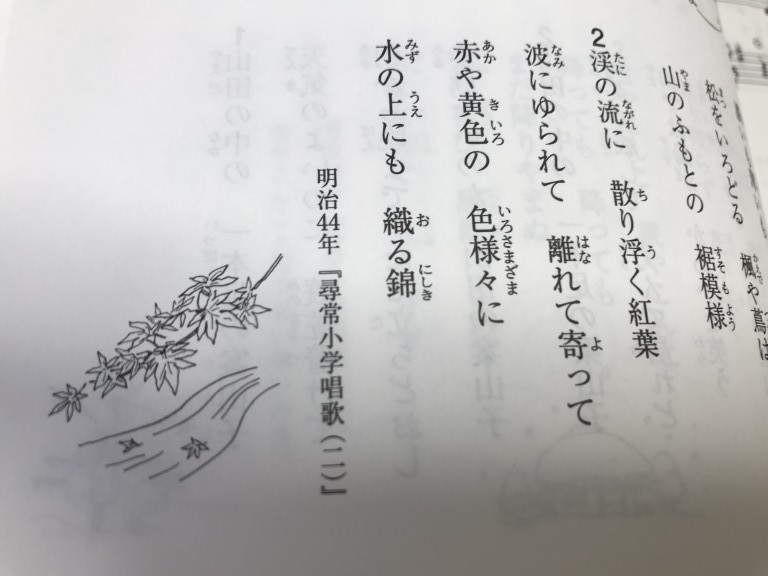 松をいろどる 楓や蔦は
山のふもとの 裾模様
2 渓の流に 散り浮く紅葉
波にゆられて 離れて寄って
赤や黄色の 色様々に
水の上にも 織る錦
明治44年『尋常小学唱歌(二)』